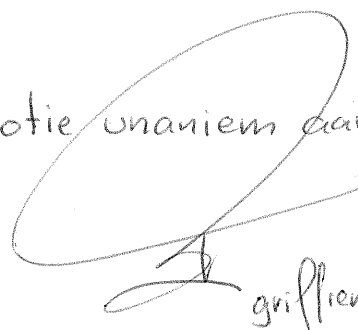 otie unaniem aa
griffier